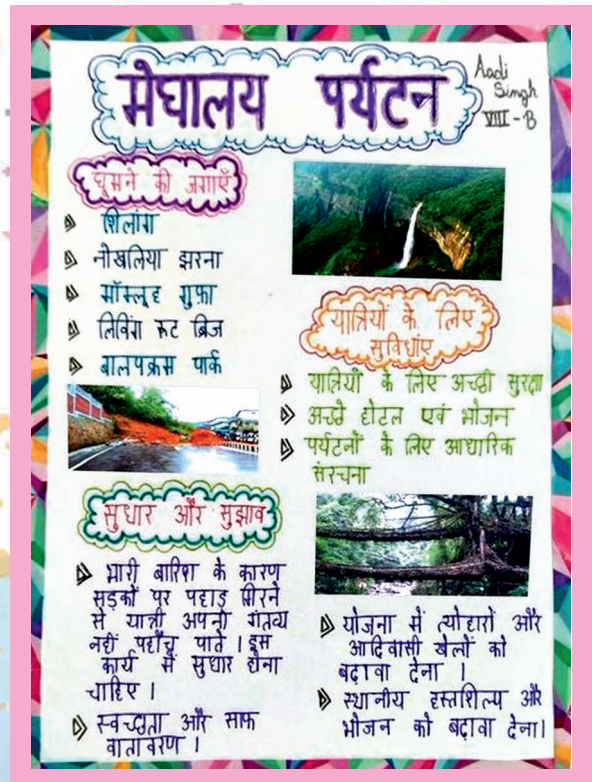 मेघालय पर्यटन
Aadi
Singh
VIII - B
घूमने की जगाएँ
शिलांग
नोखलिया झरना
मॉस्लूह गुफ़ा
लिविंग रूट ब्रिज
बालपक्रस पार्क
यात्रियों के लिए
सुविधांए
यात्रियों के लिए अच्छी सुरक्षा
अच्छे होटल एवं भोजन
पर्यटनों के लिए आधारिक
संरचना
सुधार और सुझाव
भारी बारिश के कारण
सड़कों पर पहाड़ गिरने
से यात्री अपनी गंतव्य
नहीं पहुँच पाते । इस
कार्य में सुधार होना
चाहिए ।
स्वच्छता और साफ
वातावरण ।
योजना में त्योहारों और
आदिवासी खेलों को
बढ़ावा देना ।
स्थानीय हस्तशिल्प और
भोजन को बढ़ावा देना।